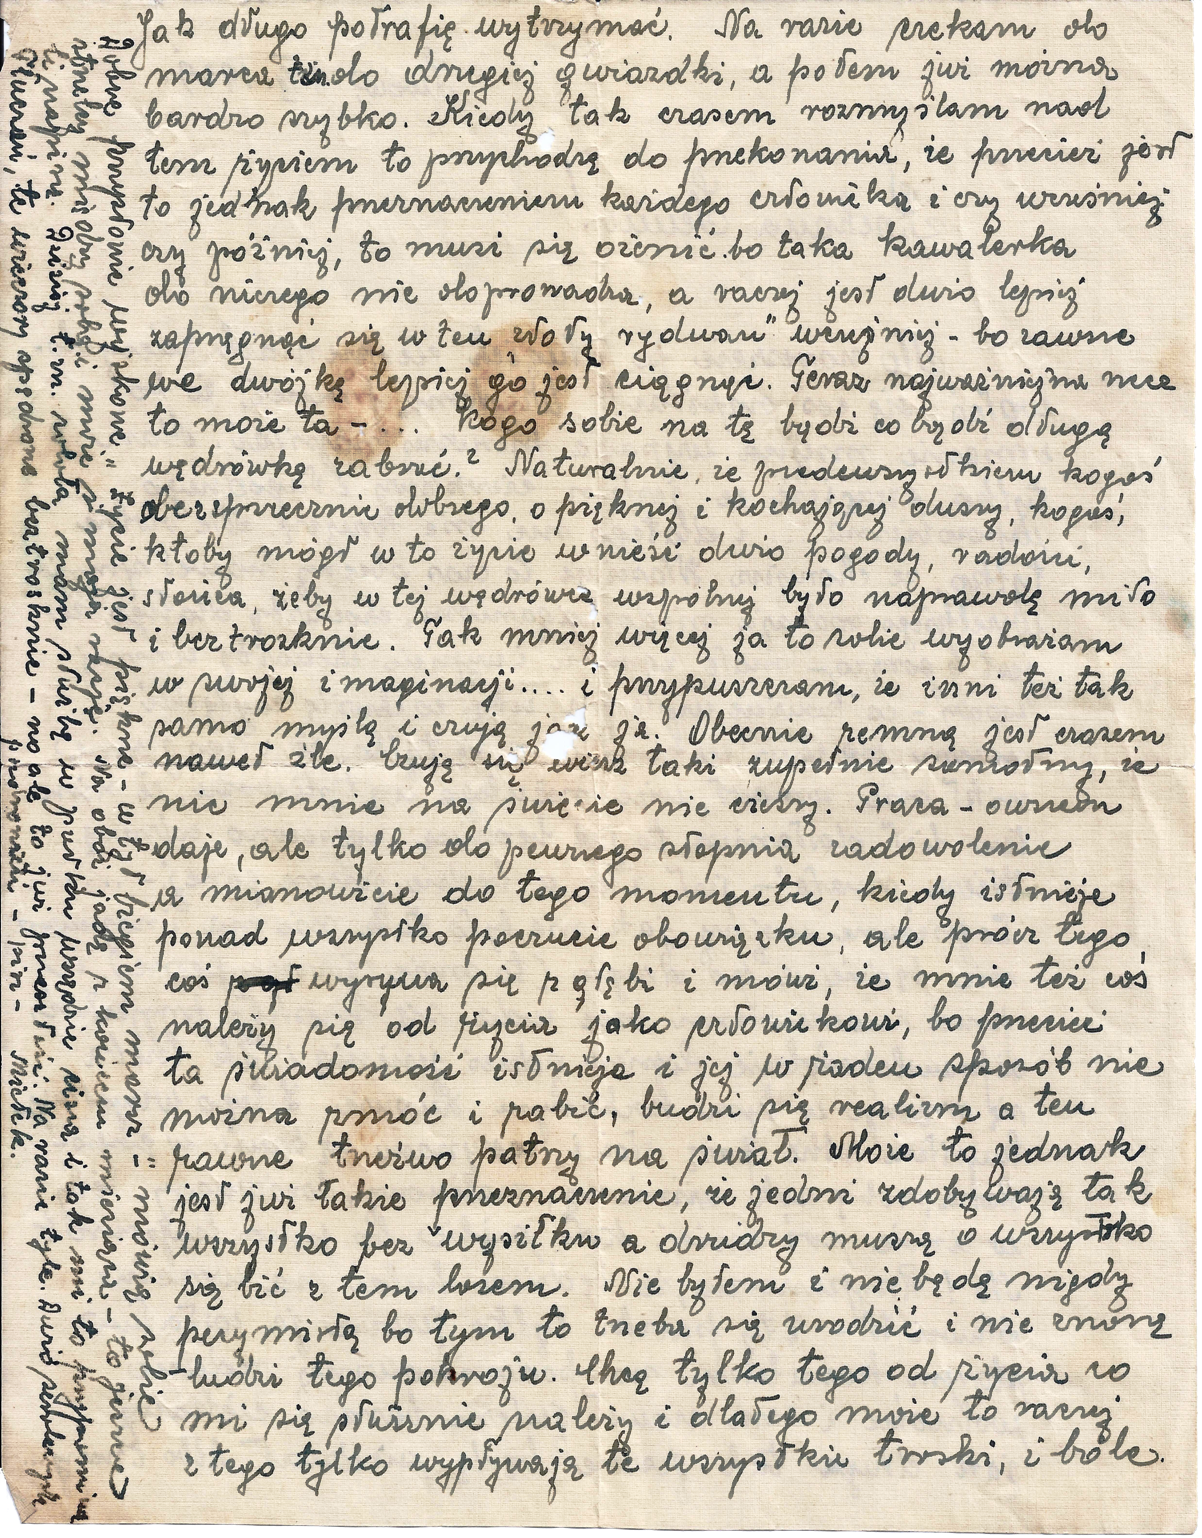 Jak długo potrafię wytrzymać. Na razie czekam do
marca do drugiej gwiazdki, a potem już można
bardzo szybko. Kiedy tak czasem rozmyślam nad
tem życiem to przychodzę do przekonania, że przecież jest
to jednak przeznaczeniem każdego człowieka i czy wcześniej
czy później, to musi się ożenić bo taka kawalerka
do niczego nie doprowadza, a raczej jest dużo lepiej
zaprzęgnąć się w ten "złoty rydwan" wcześniej - bo zawsze
we dwójkę lepiej go jest ciągnąć. Teraz najważniejsza rzecz
to może ta - ... Kogo sobie na tę bądź co bądź długą
wędrówkę zabrać? Naturalnie, że przedewszystkiem kogoś
bezsprzecznie dobrego, o pięknej i kochającej duszy, kogoś,
ktoby mógł w to życie wnieść dużo pogody, radości,
słońca, żeby w tej wędrówce wspólnej było naprawdę miło
i beztrosknie. Tak mniej więcej ja to sobie wyobrażam
w swojej imaginacji.... i przypuszczam, że inni też tak
samo myślą i czują jak ja. Obecnie zemną jest czasem
nawet źle. Czuję się wisz taki zupełnie samotny, że
nic mnie na świecie nie cieszy. Praca - owszem
daje, ale tylko do pewnego stopnia zadowolenie
a mianowicie do tego momentu, kiedy istnieje
ponad wszystko poczucie obowiązku, ale prócz tego
coś wyrywa się z głębi i mówi, że mnie też coś
należy się od życia jako człowiekowi, bo przecież
ta świadomość istnieje i jej w żaden sposób nie
można zmóc i zabić, budzi się realizm a ten
zawsze trzeźwo patrzy na świat. Może to jednak
jest już takie przeznaczenie, że jedni zdobywają tak
wszystko bez wysiłku a drudzy muszą o wszystko
się bić z tem losem. Nie byłem i nie będę nigdy
pesymistą bo tym to trzeba się urodzić i nie znoszę
ludzi tego pokroju. Chcę tylko tego od życia co
mi się słusznie należy i dlatego może to raczej
z tego tylko wypływają te wszystkie troski, i bóle.
Dobre przysłowie wojskowe, "życie jest piękne - w tył biegiem marsz -" mówią sobie
i może i mają rację. Na obóz jadę z końcem miesiąca - to jeszcze
Ci napiszę. Dzisiaj t.zn. sobota mam służbę w pułku wszędzie cisza i tak mi to przypomina
Tłuczań, te wieczory spędzone beztrosknie - no ale to już przeszłość. Na razie tyle. Dużo serdecznych
pozdrowień - pisz - Mietek.